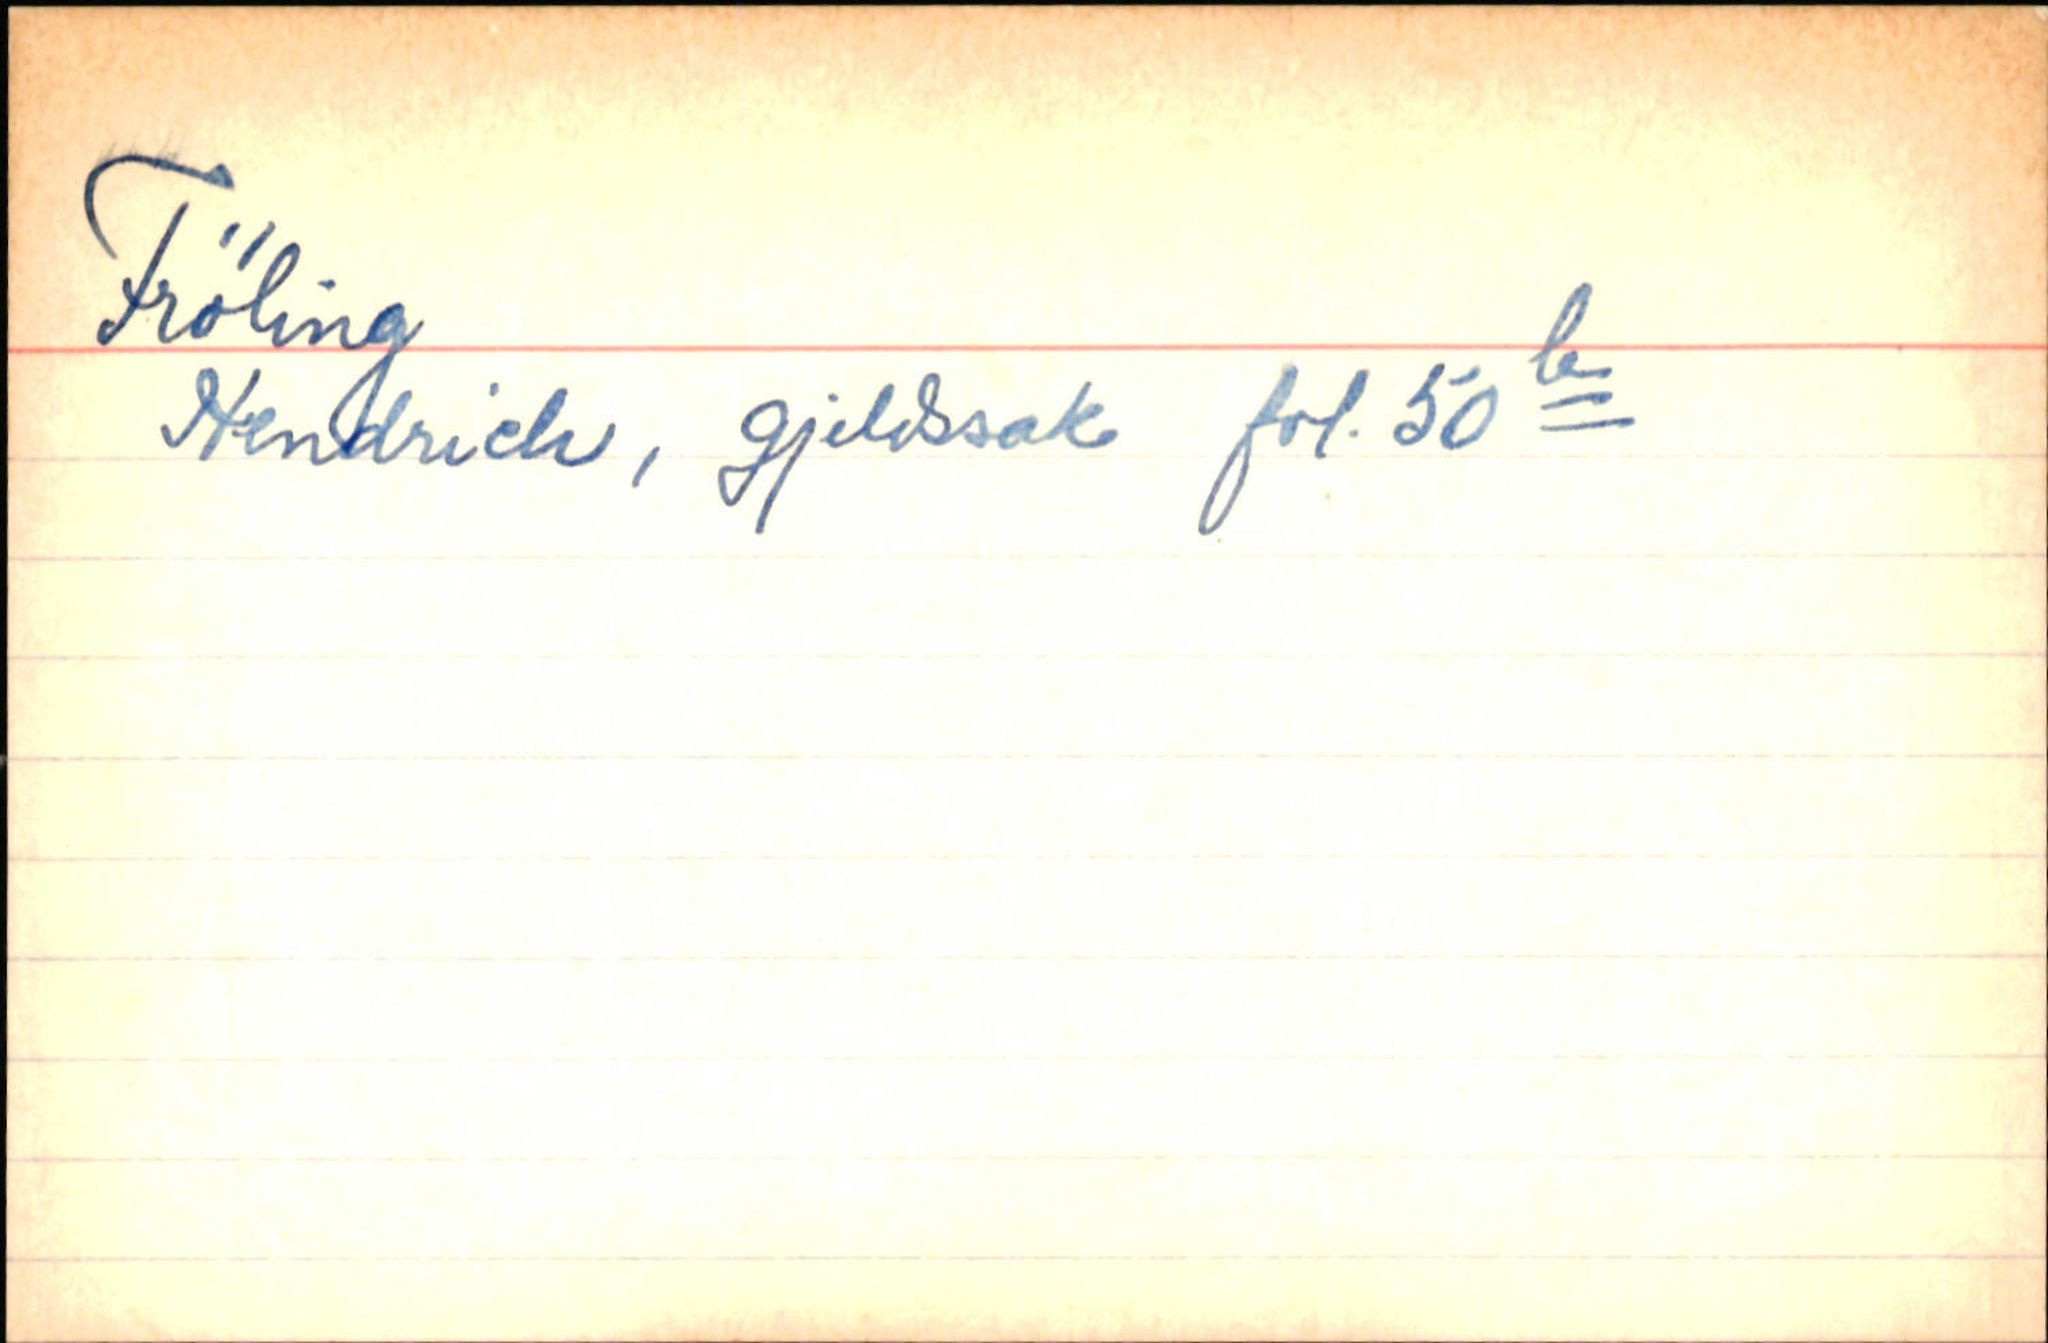 Fröling
Hendrich, gjeldssak fol. 50 b